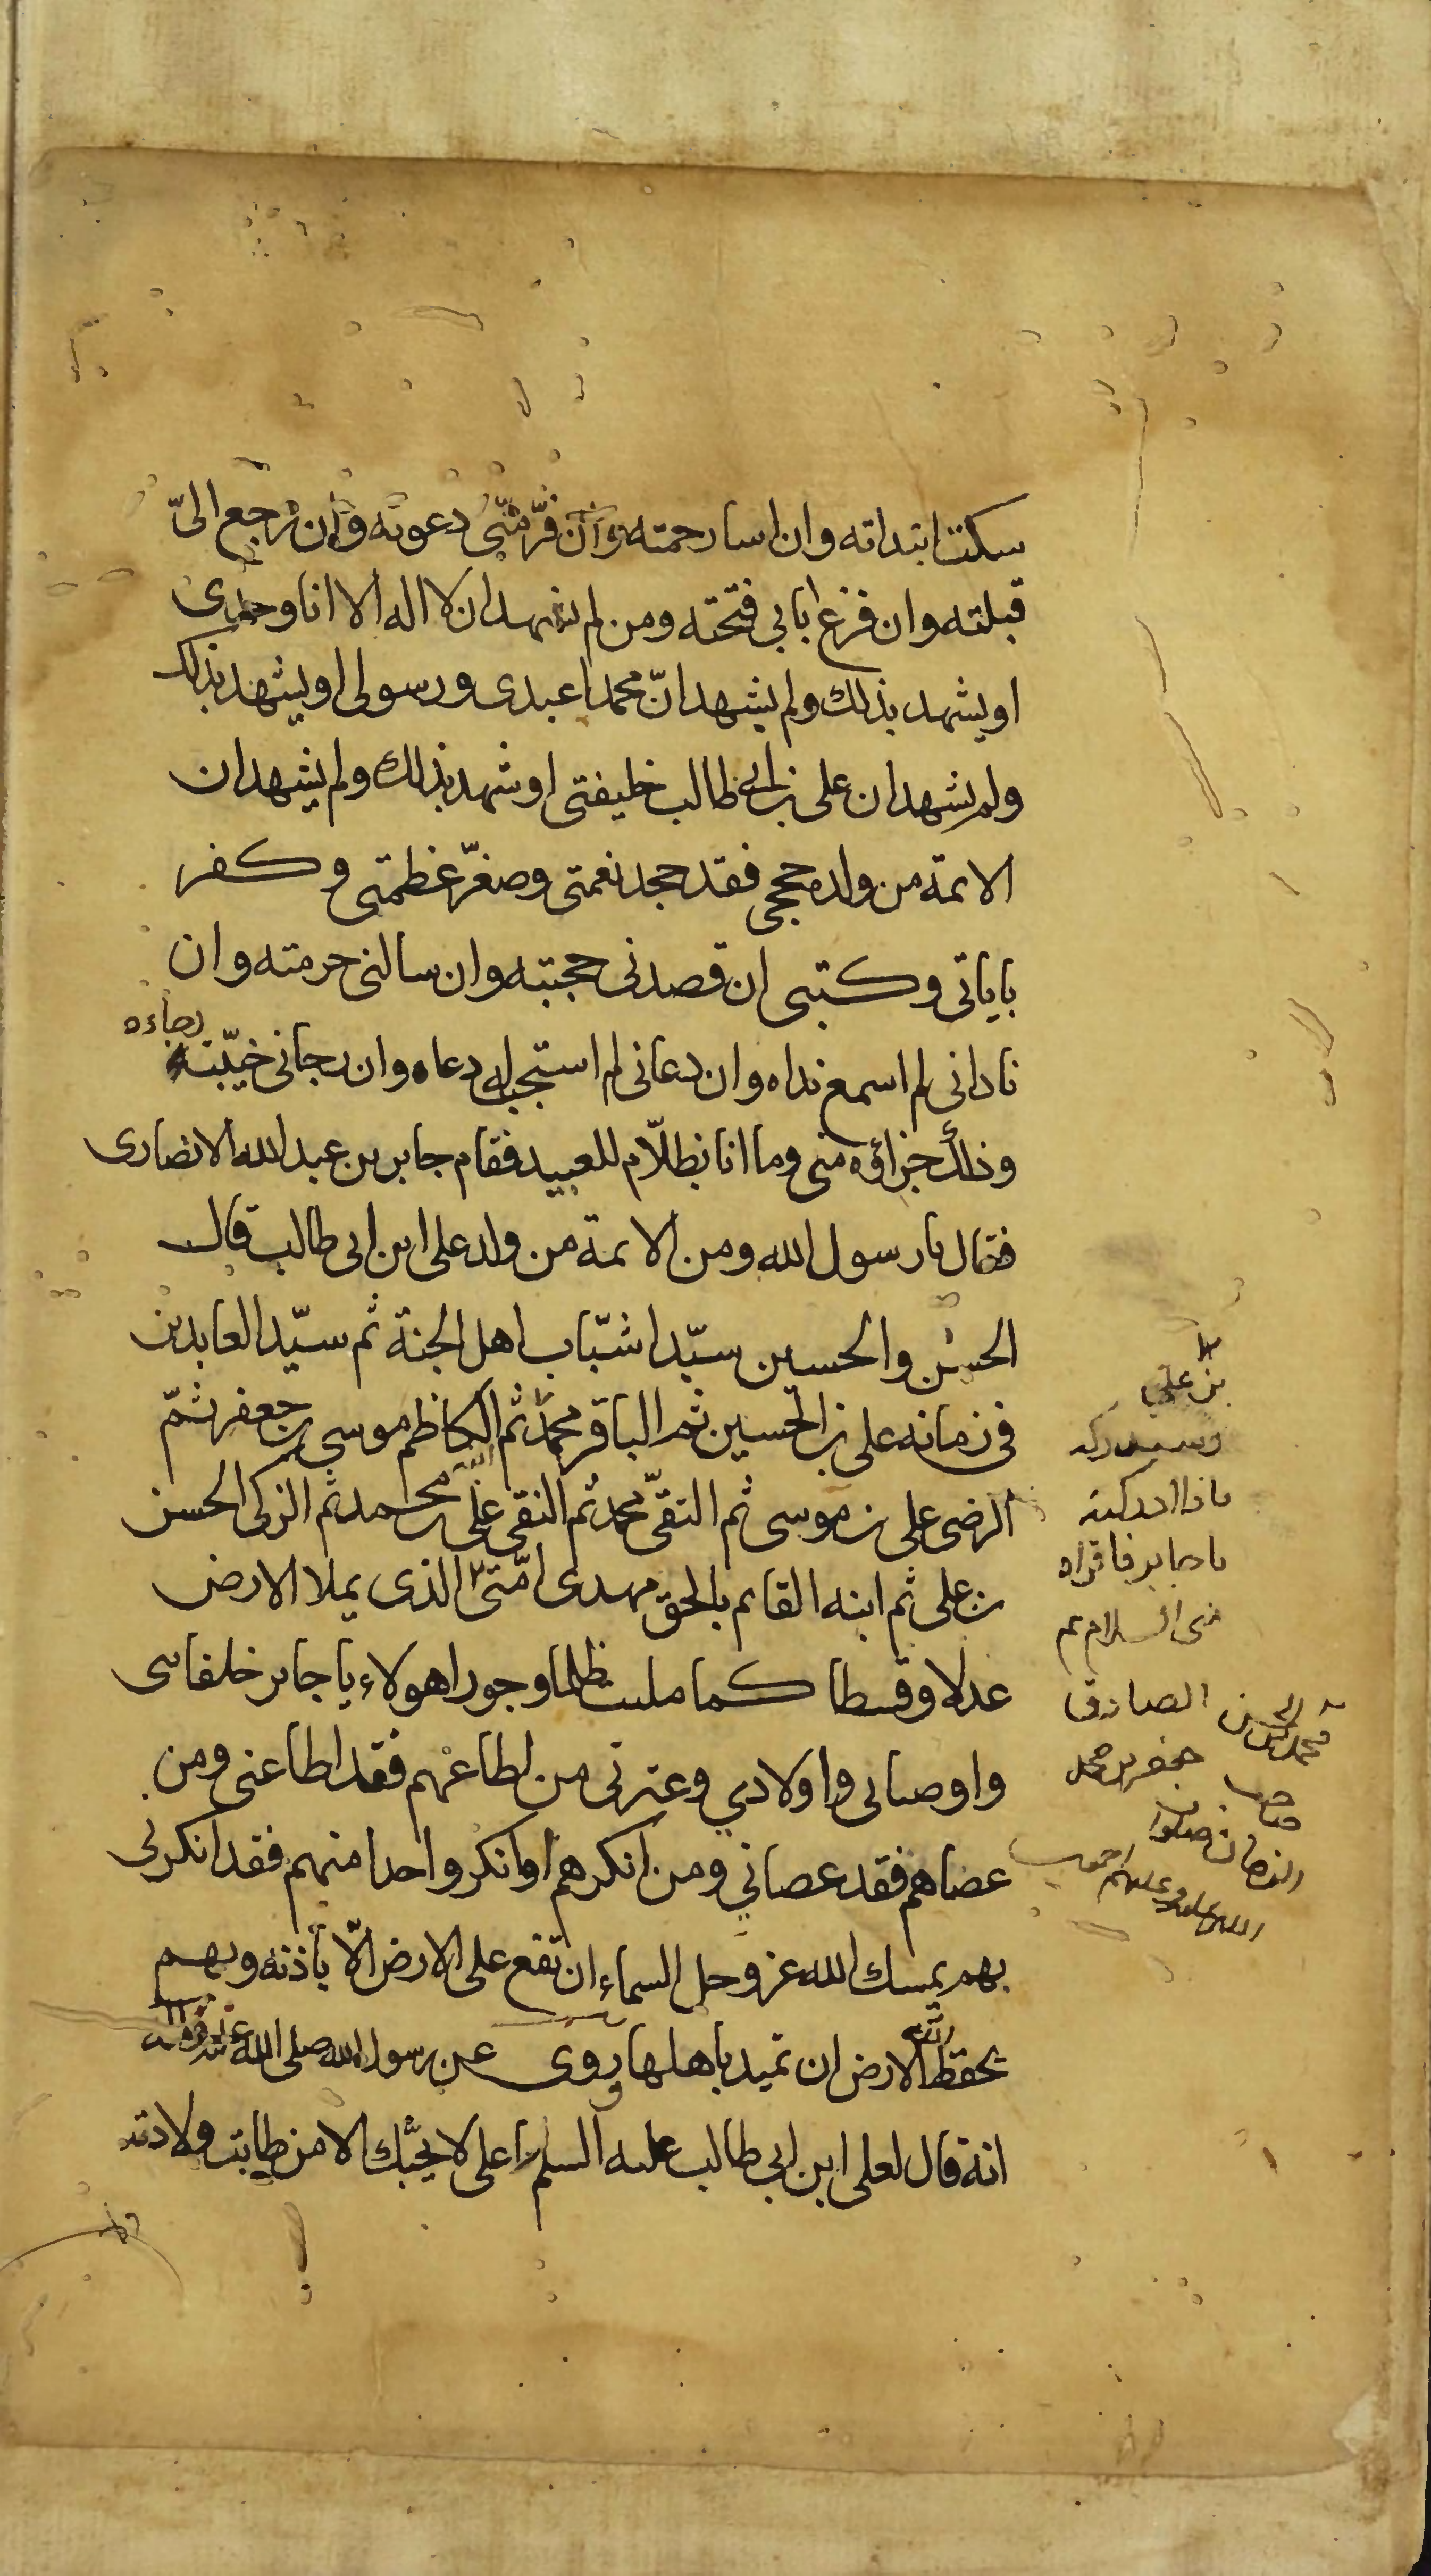 سكت ابتداته وان اسا رحمته وان فرّ منّى دعوته وان رجع الىّ
قبلته وان فزع بابي فتحته ومن لم يشهد ان لا اله الا انا وحدى
او يشهد بذلك ولم يشهد انّ محمدا عبدى ورسولى او يشهد بذلك
ولم يشهد ان على بن ابي طالب خليفتى او شهد بذلك ولم يشهد ان
الائمة من ولده حججى فقد جحد نعمتى وصغّر عظمتى وكفر
باياتى وكتبى ان قصدنى حجبته وان سالنى حرمته وان
نادانى لم اسمع نداه وان دعانى لم استجب له دعاه وان رجانى خيّبته
رجاءه
وذلك جزاؤه منى وما انا بظلّام للعبيد فقام جابر بن عبد الله الانصارى
فقال يا رسول الله ومن الائمة من ولد على ابن ابى طالب قال
الحسن والحسين سيّدا شبّاب اهل الجنة ثم سيّد العابدين
فى زمانه على بن الحسين ثم الباقر محمد ثم الكاظم موسى بن جعفر ثمّ
الرضى على بن موسى ثم التقىّ محمد ثم النقى علىّ بن محمد ثم الزكى الحسن
بن على ثم ابنه القايم بالحق مهدى امّتى الذى يملا الارض
عدلا وقسطا كما ملئت ظلما وجورا هولاء يا جابر خلفاىى
واوصيائى واولادي وعترتى من اطاعهم فقد اطاعنى ومن
عصاهم فقد عصاني ومن انكرهم او انكر واحدا منهم فقد انكرنى
بهم يمسك الله عز وجل السماء ان تقع على الارض الّا بأذنه وبهم
يحفظ الله الارض ان تميد باهلها وروى عن رسول الله صلى الله عليه
انه قال لعلى ابن ابي طالب عليه السلم يا على لا يحبّك الا من طابت ولادته
بن علي
وستدركه
فاذا ادركته
يا جابر فاقراه
منى السلام ثم
الصادق
جعفر بن محمد
محمد بن الحسن
صاحب
الزمان صلوات
الله عليه وعليهم